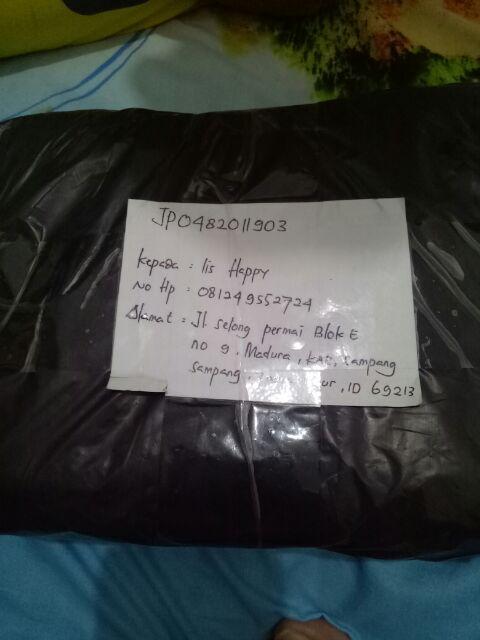 JP0482011903
Kepada : Iis Happy
No Hp : 081249552724
Alamat : Jl. selong permai Blok E
no 9, Madura, KAB. Sampang
Sampang ur, ID 69213